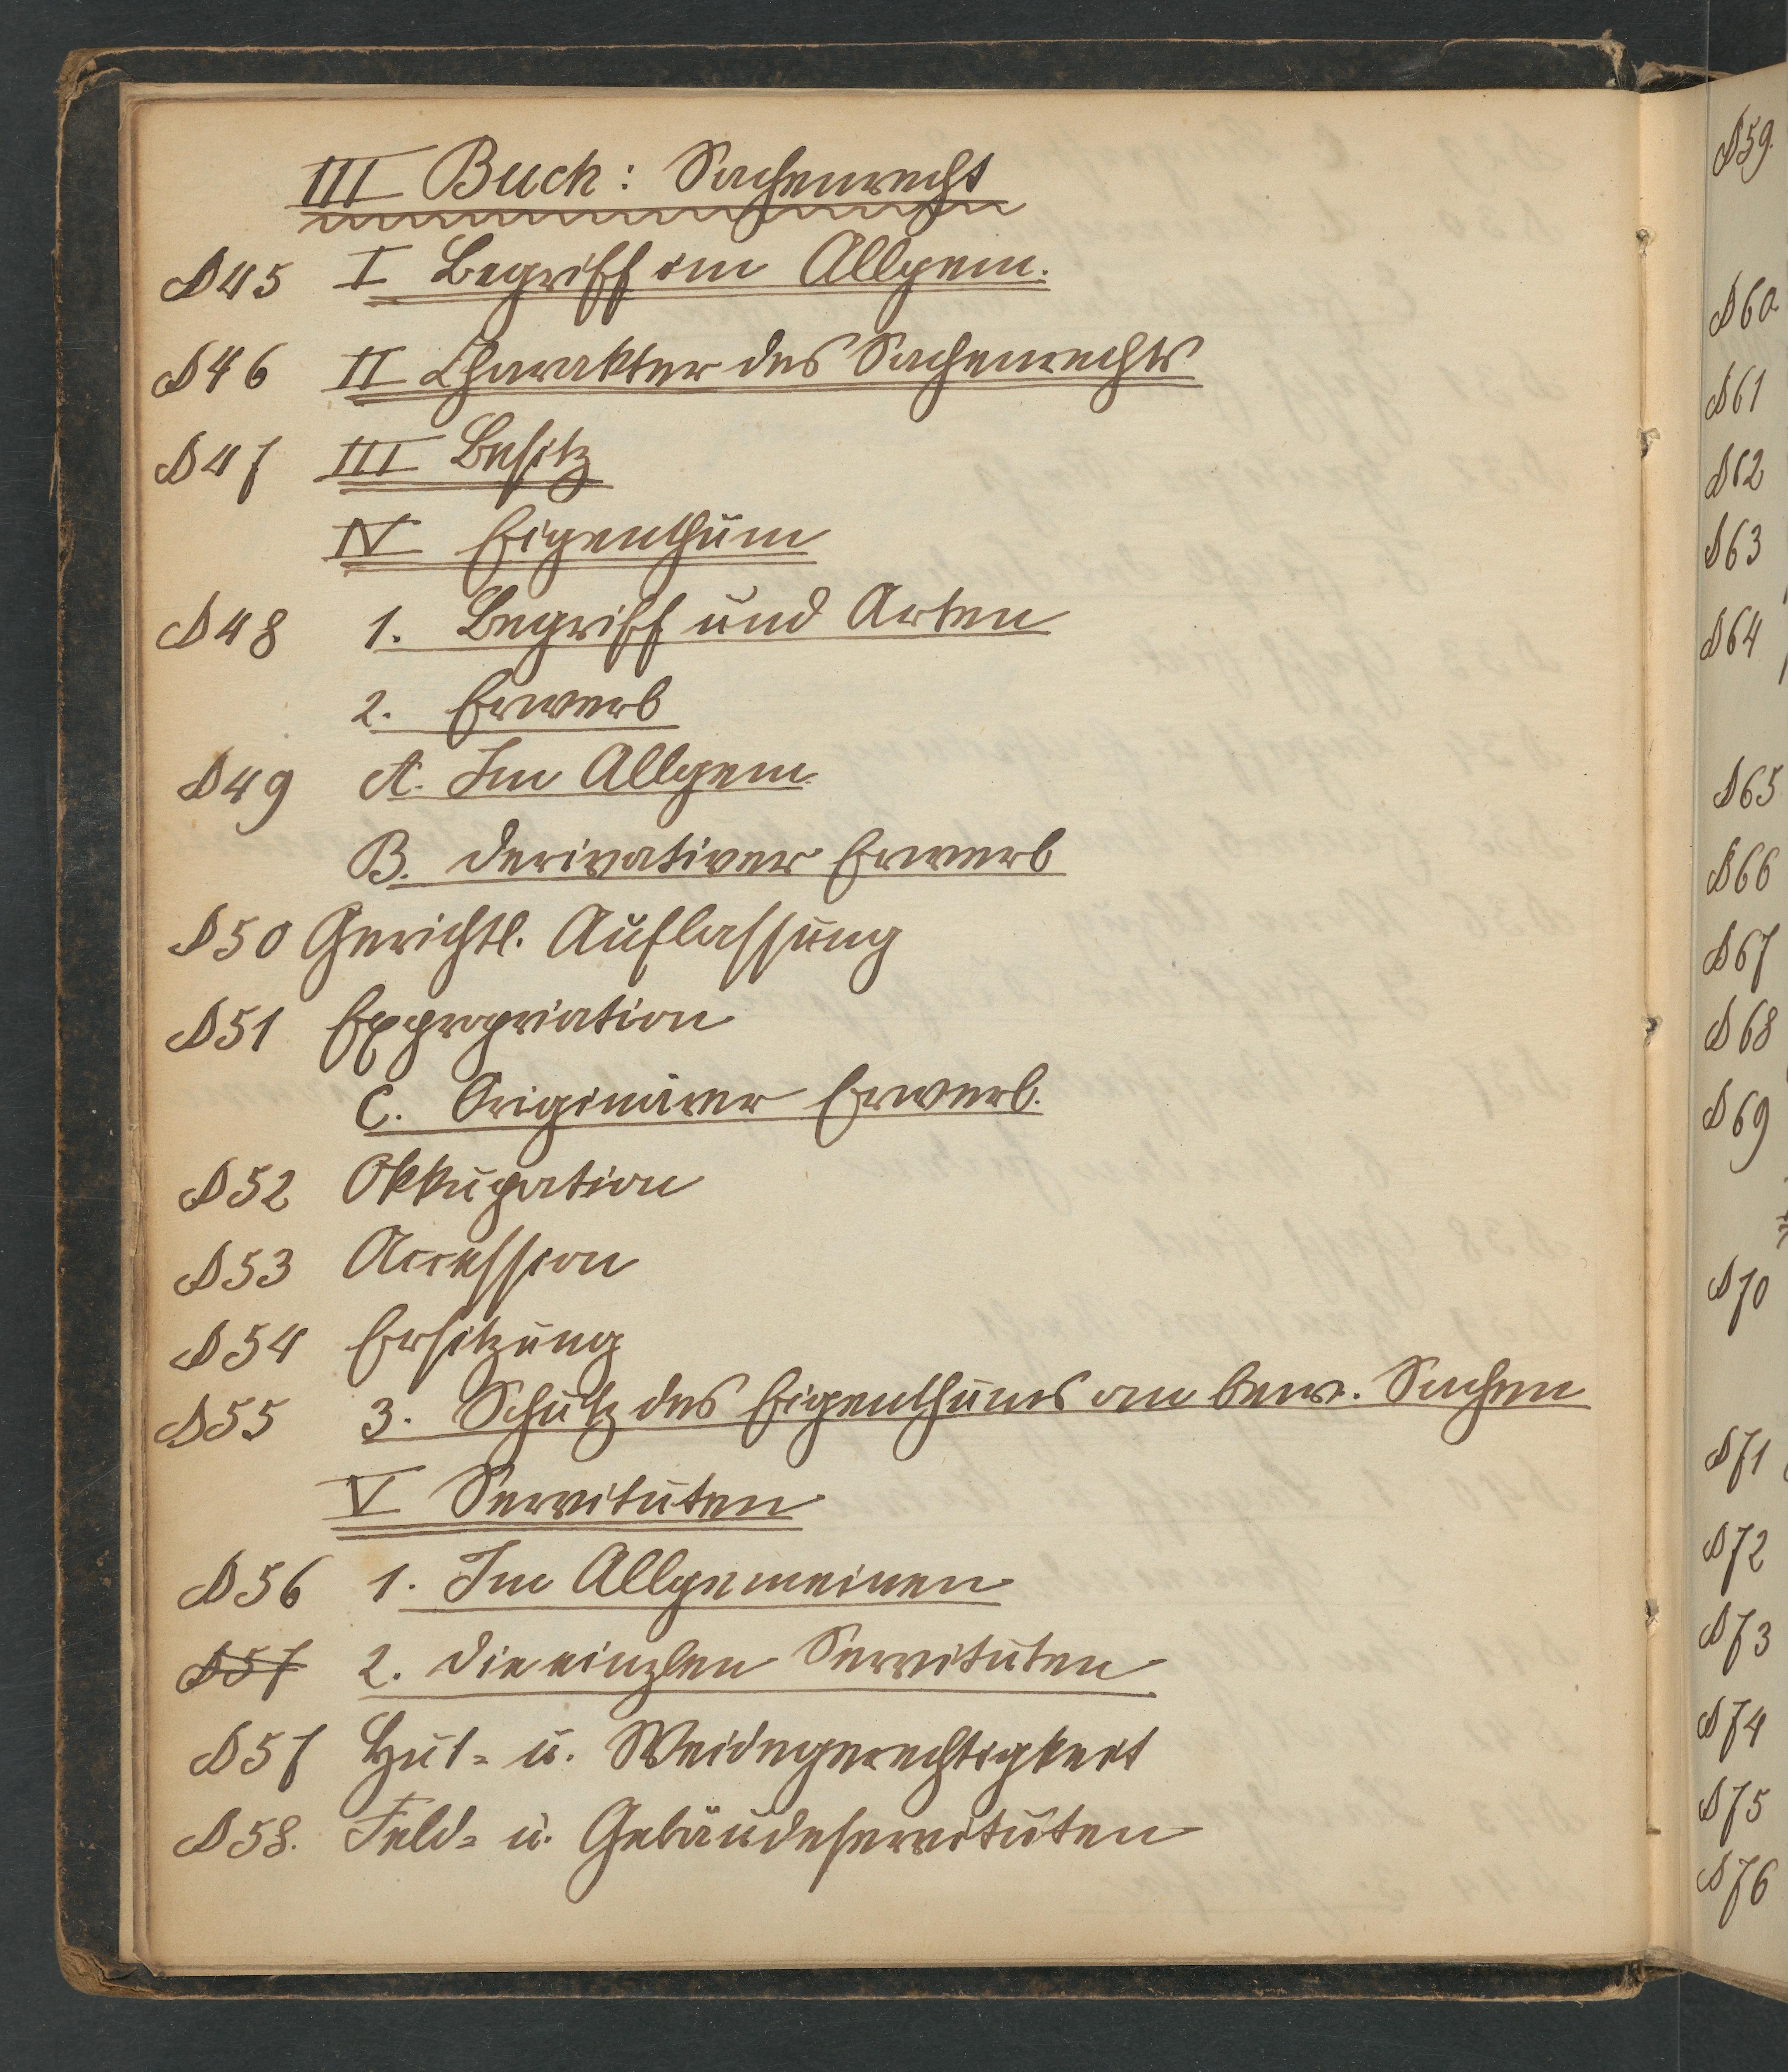 III Buch: Sachenrecht
§45 I Begriff im Allgem.
§46 II Charakter des Sachenrechts
§47 III Besitz
IV Eigenthum
§48 1. Begriff und Arten
2. Erwerb
§49 A. Im Allgem.
B. derivativer Erwerb
§50 Gerichtl. Auflassung
§51 Expropriation
C. Originärer Erwerb.
§52 Okkupation
§53 Accession
§54 Ersitzung
§55 3. Schutz des Eigenthums an bew. Sachen
V Servituten
§56 1. Im Allgemeinen
§57 2. die einzlen Servituten
§57 Hut- u. Weidegerechtigkeit
§58. Feld- u. Gebäudeservituten
§59.
§60
§61
§62
§63
§64
§65
§66
§67
§68
§69
§70
§71
§72
§73
§74
§75
§76